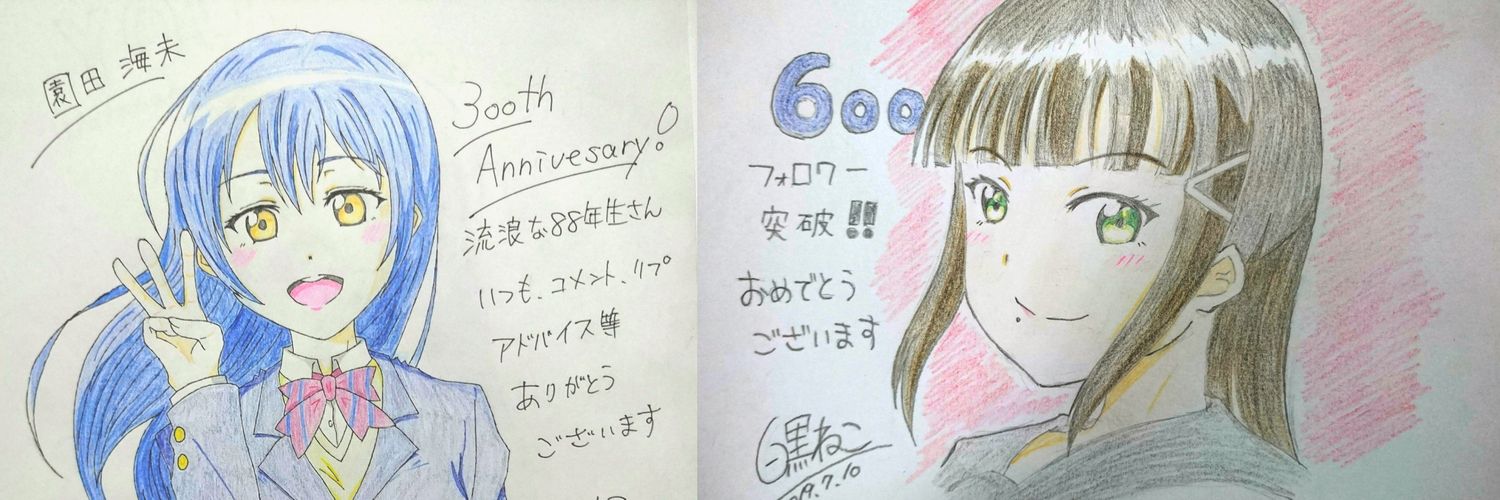 園田 海未
300th
Annivesary!
流浪な88年生さん
いつも、コメント、リプ
アドバイス等
ありがとう
ございます
600
フォロワー
突破!!
おめでとう
ございます
白黒ねこ